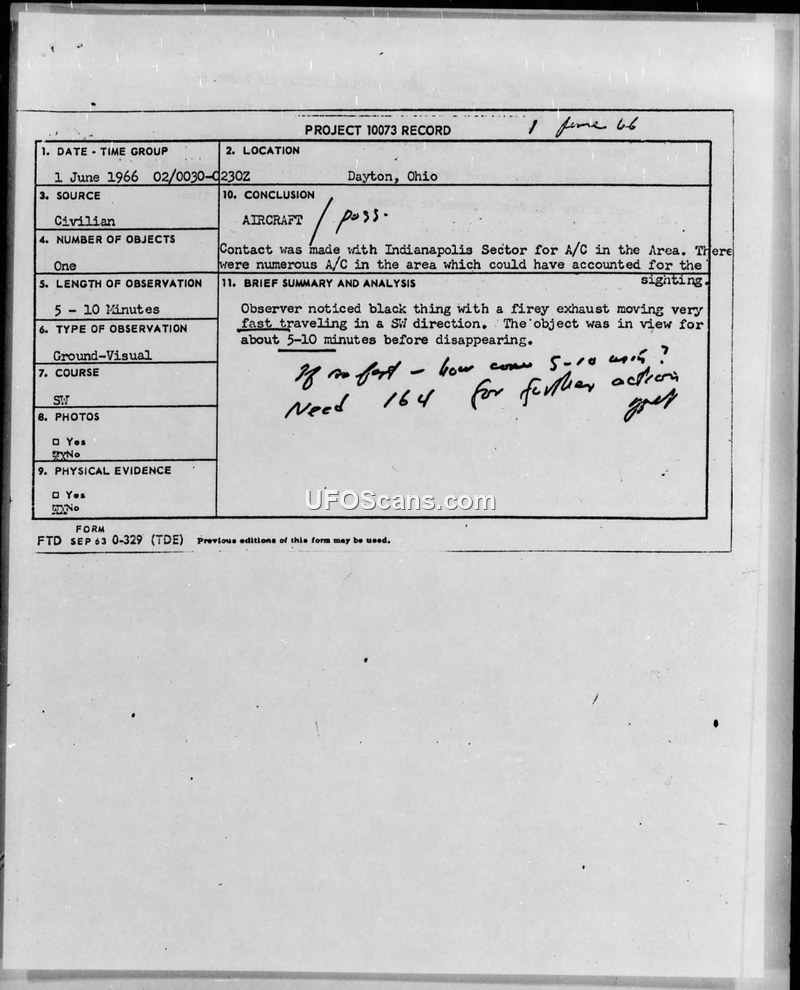 PROJECT 10073 RECORD
1 June 66
1. DATE - TIME GROUP
1 June 1966 02/0030-0230Z
2. LOCATION
Dayton, Ohio
3. SOURCE
Civilian
10. CONCLUSION
AIRCRAFT / poss.
Contact was made with Indianapolis Sector for A/C in the Area. There
were numerous A/C in the area which could have accounted for the
sighting.
4. NUMBER OF OBJECTS
One
5. LENGTH OF OBSERVATION
5 - 10 Minutes
11. BRIEF SUMMARY AND ANALYSIS
Observer noticed black thing with a firey exhaust moving very
fast traveling in a SW direction. The object was in view for
about 5-10 minutes before disappearing.
If so fast - how come 5-10 min?
Need 164 for further action
6. TYPE OF OBSERVATION
Ground-Visual
7. COURSE
SW
8. PHOTOS
□ Yes
No
9. PHYSICAL EVIDENCE
□ Yes
No
FORM
FTD SEP 63 0-329 (TDE) Previous editions of this form may be used.
UFOScans.com